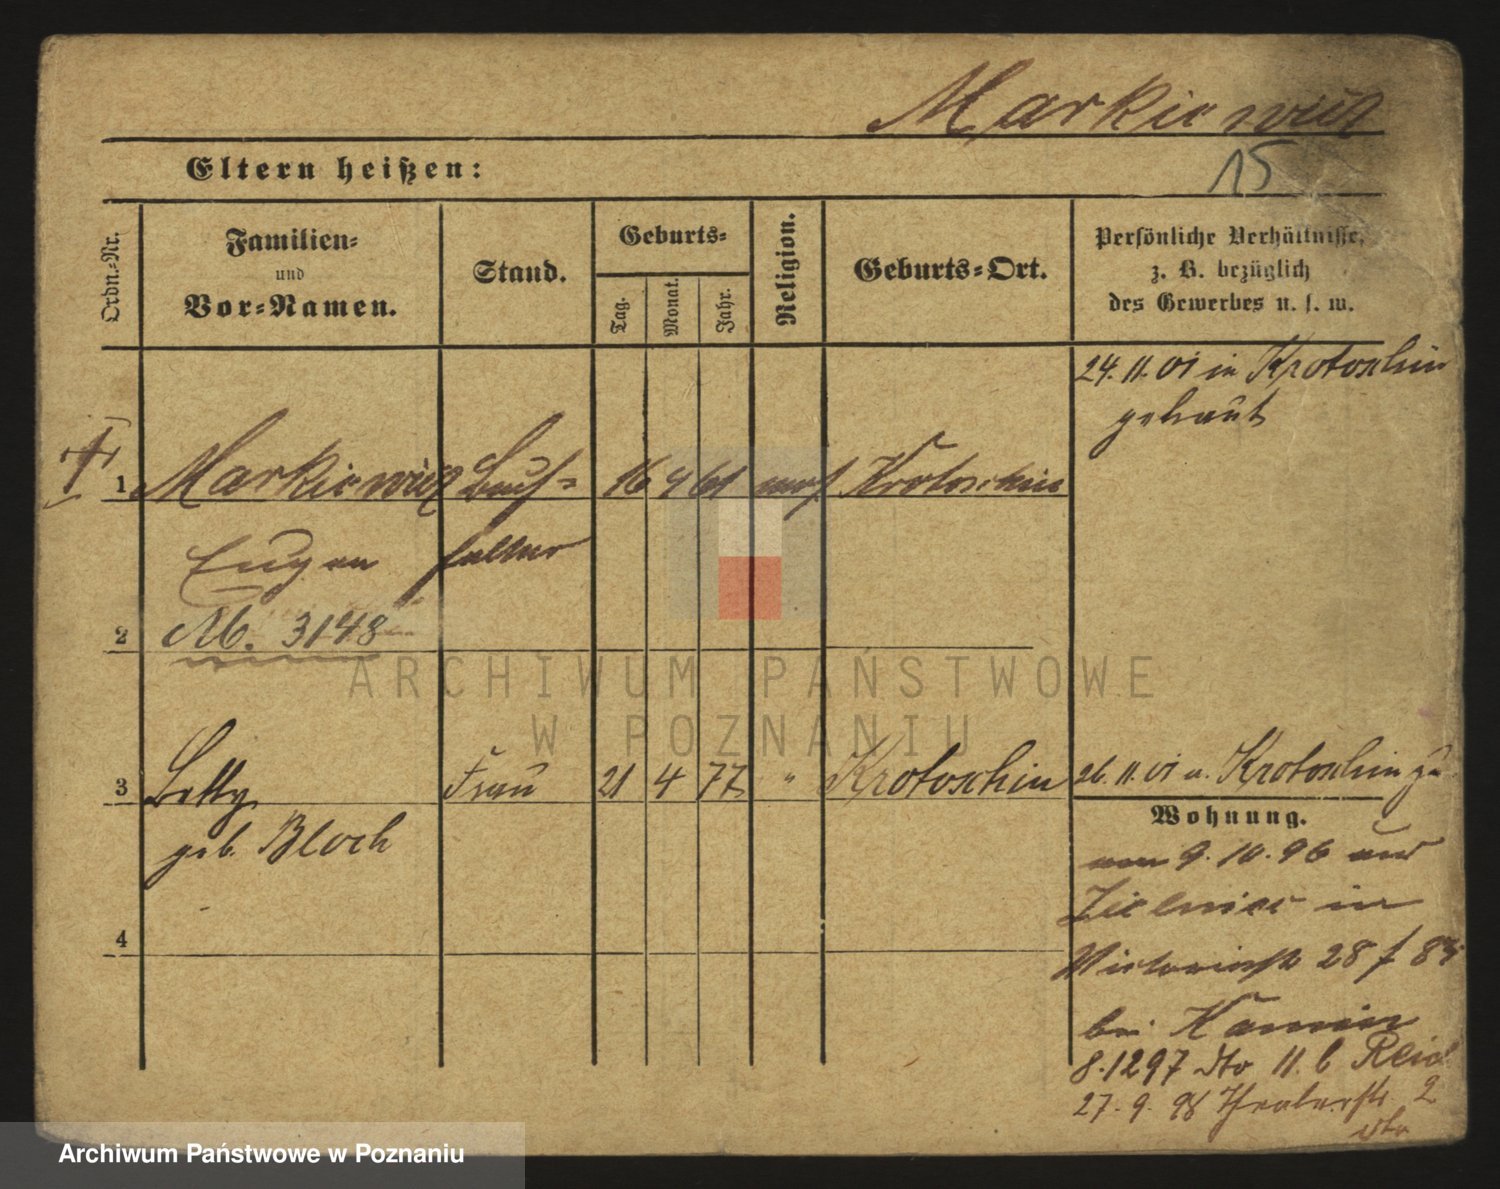 Markiewicz
Eltern heißen:
15
Ordn.-Nr.
Familien-
und
Vor-Namen.
Stand.
Geburts-
Tag.
Monat.
Jahr.
Religion.
Geburts-Ort.
Persönliche Verhältnisse,
z. B. bezüglich
des Gewerbes u. s. w.
24. 11. 01 in Krotoschin
getraut
1 Markiewicz Buch- 16 4 61 mos. Krotoschin
Eugen halter
2 M. 3148
3 Betty Frau 21 4 77 " Krotoschin 26. 11. 01 v. Krotoschin zu
geb. Bloch
Wohnung.
9. 10. 96
in
Victoriastr 28
bei Kamin
8. 12 97 dto 11. b
27. 9. 98 Theaterstr. 2
dto
4
ARCHIWUM PAŃSTWOWE
W POZNANIU
Archiwum Państwowe w Poznaniu